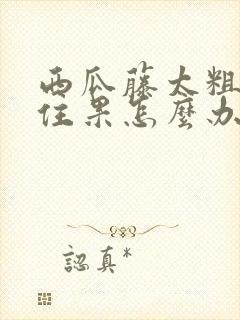 西瓜藤太粗
住果怎麼办
認真*